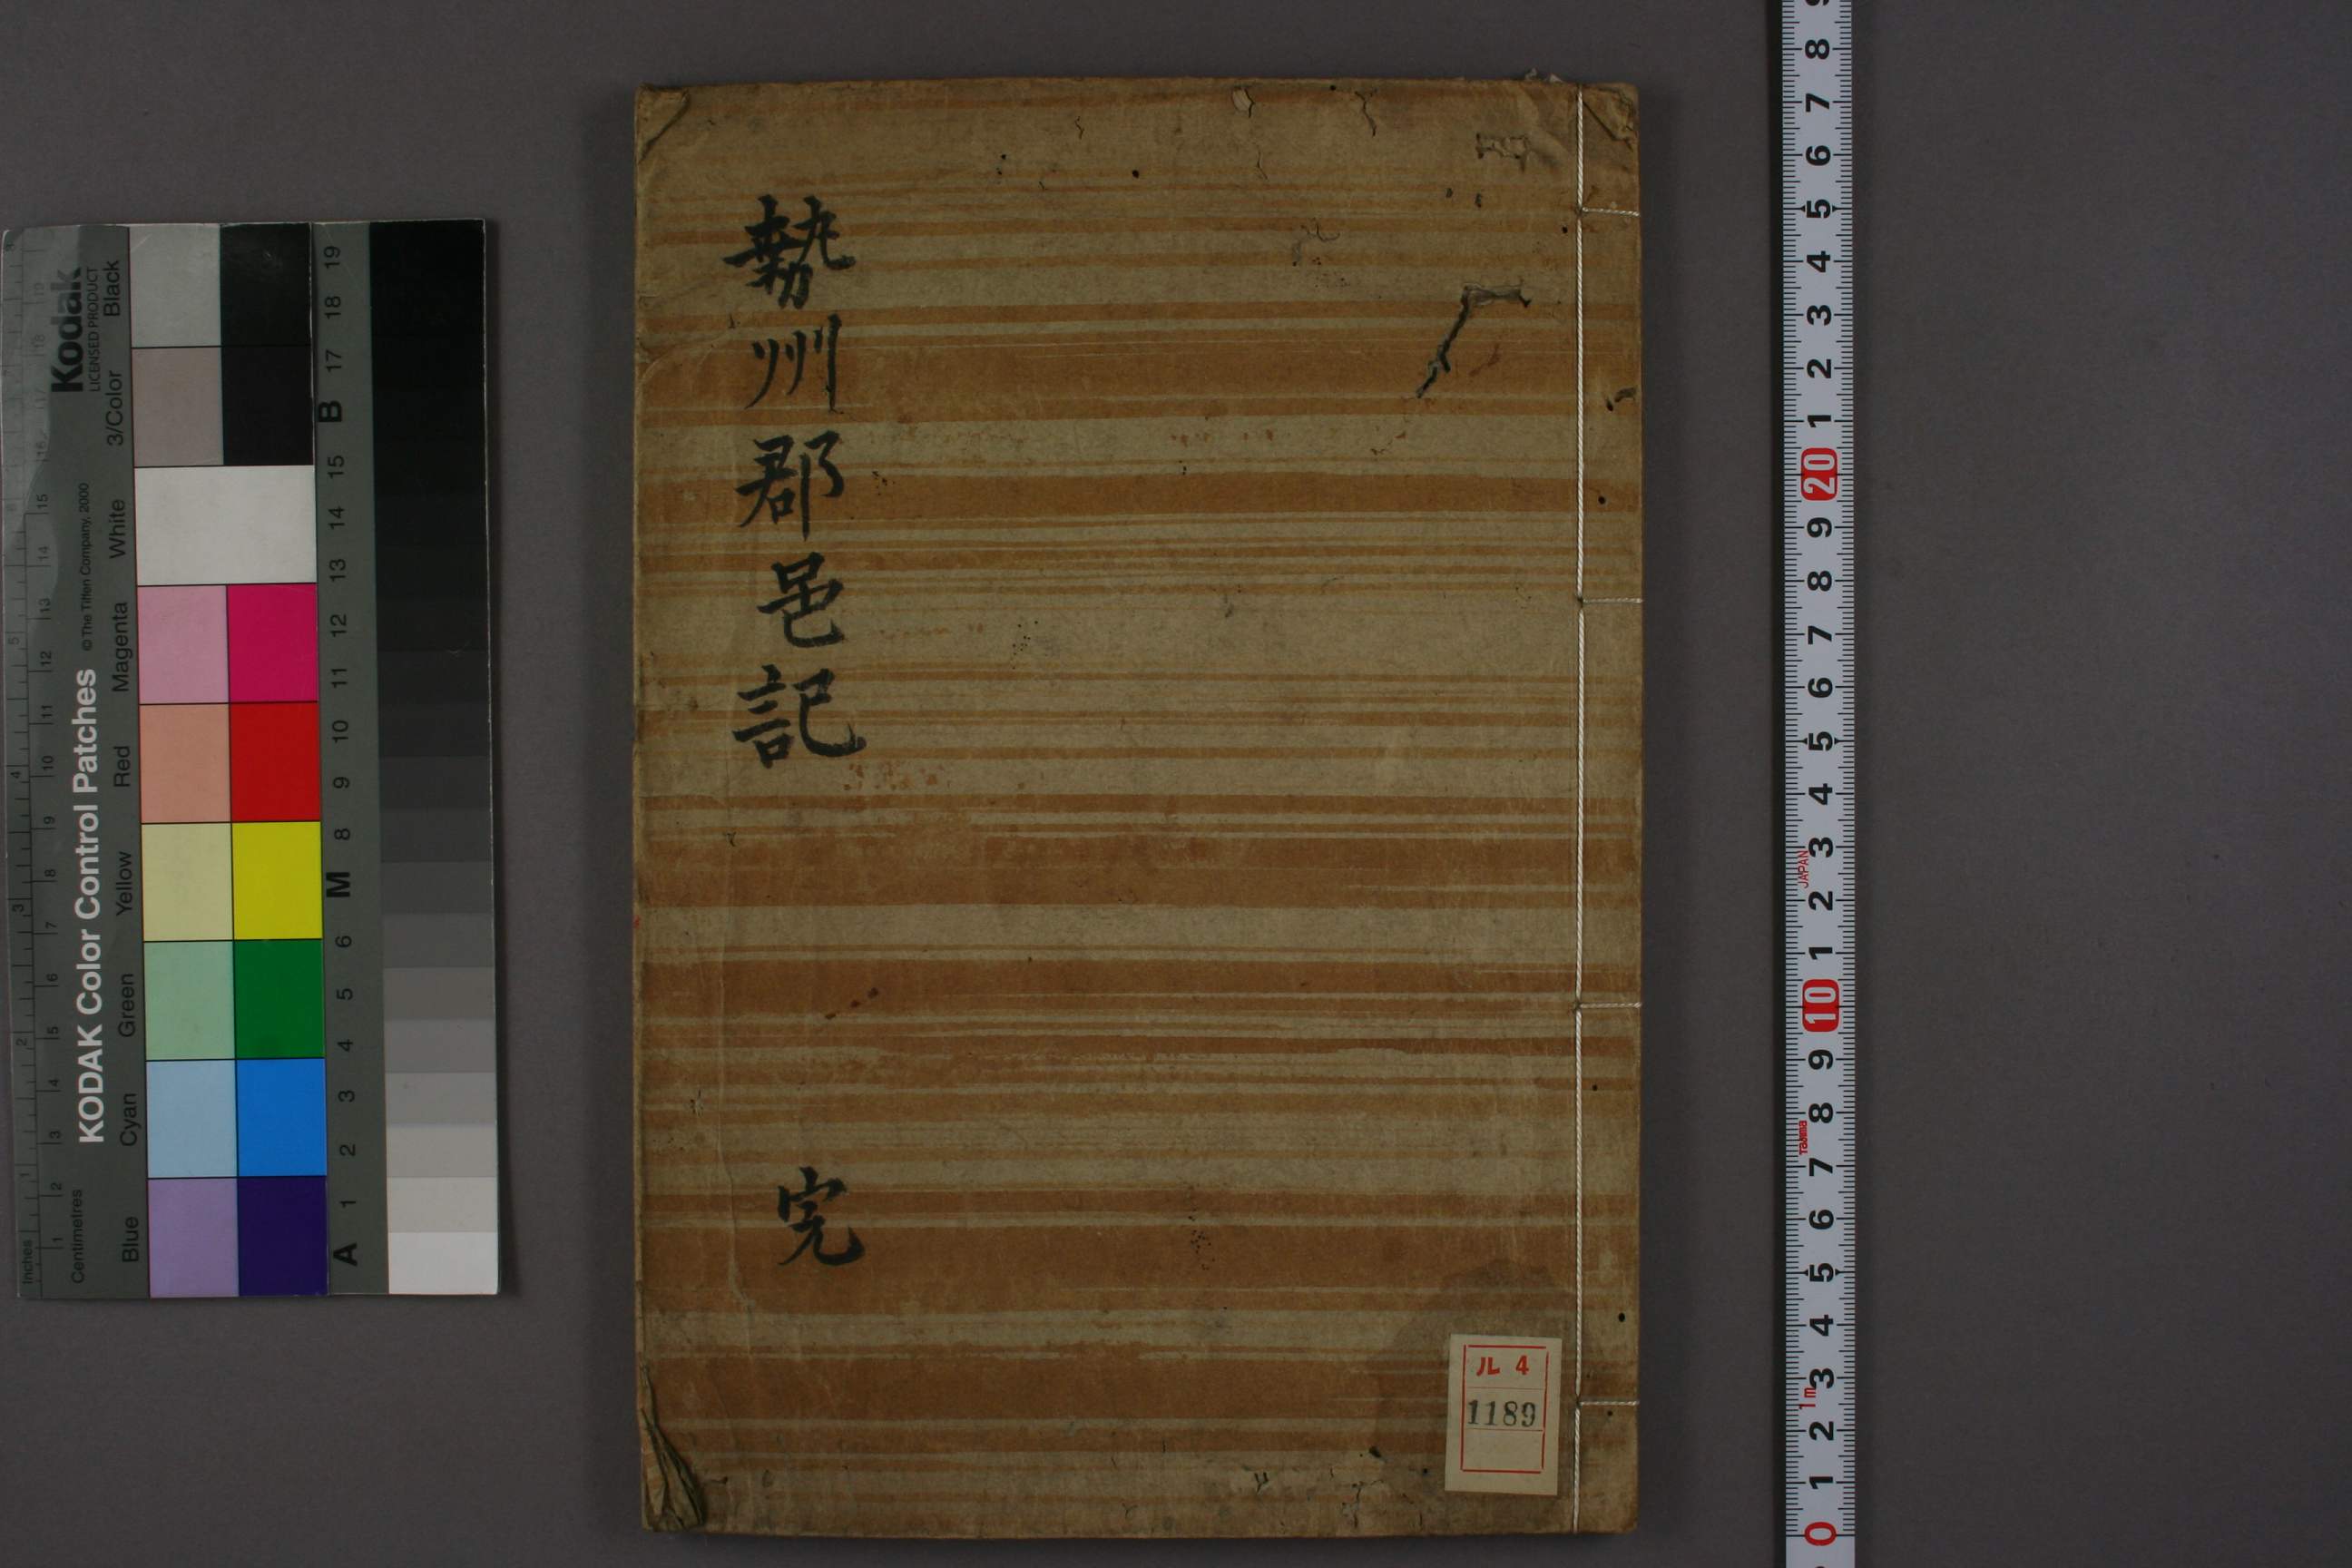 勢州郡邑記
完
ル 4
1189
Kodak
LICENSED PRODUCT
KODAK Color Control Patches
© The Tiffen Company, 2000
Inches
Centimetres
Blue
Cyan
Green
Yellow
Red
Magenta
White
3/Color
Black
A 1 2 3 4 5 6 M 8 9 10 11 12 13 14 15 B 17 18 19
8
7
6
5
4
3
2
1
20
9
8
7
6
5
4
3
JAPAN
2
1
10
9
8
Tajima
7
6
5
4
3
1m
2
1
0